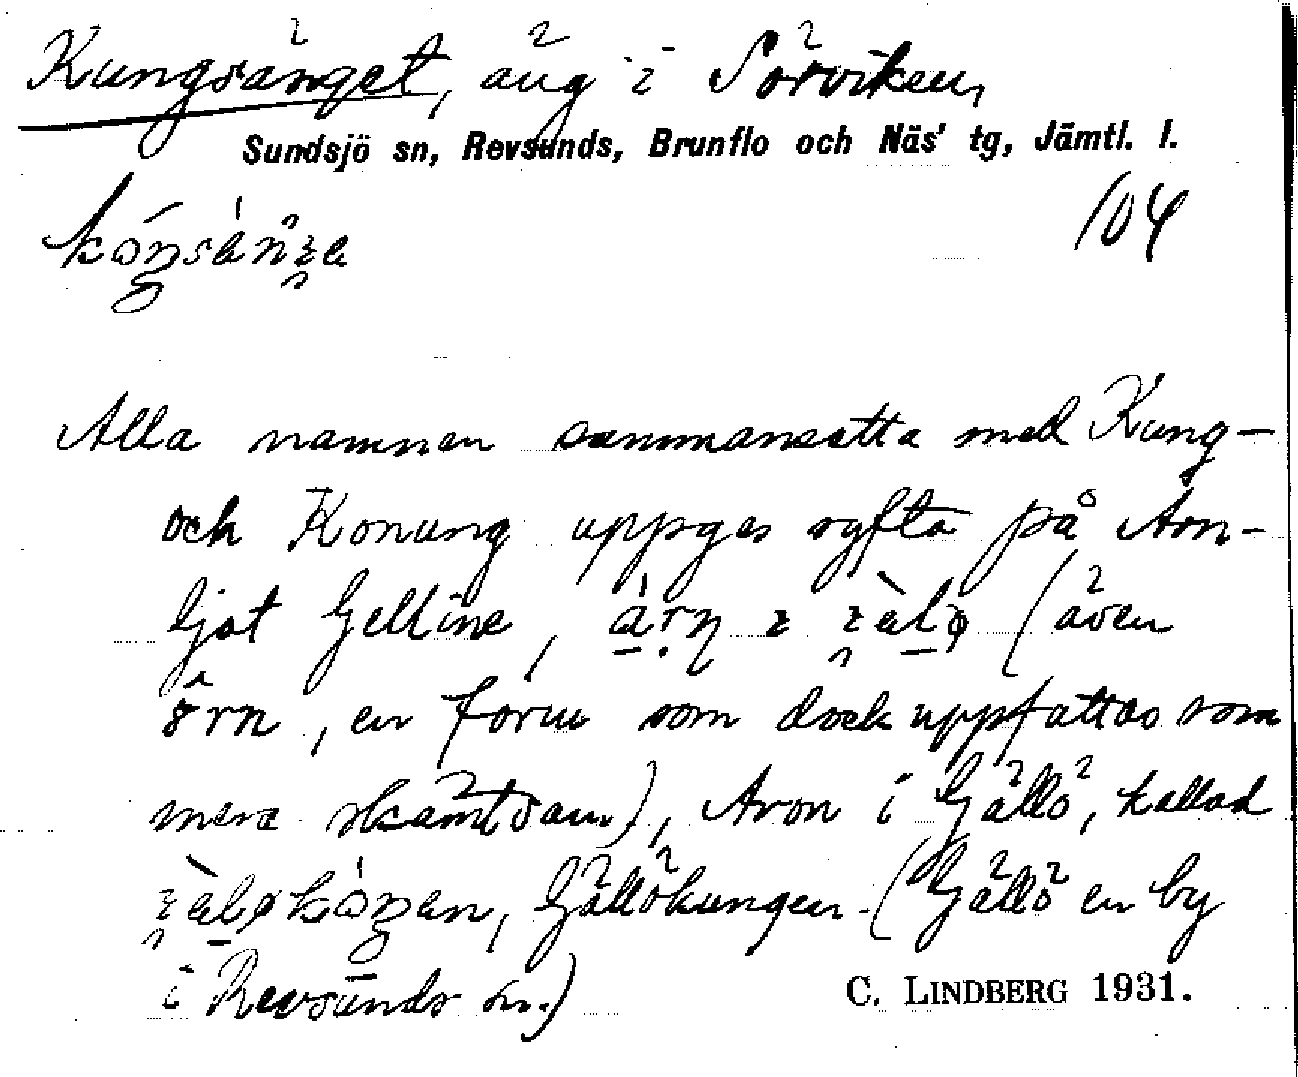 Kungsänget, äng i Sörviken,
Sundsjö sn, Revsunds, Brunflo och Näs' tg, Jämtl. l.
104
Alla namnen sammansatta med Kung-
och Konung uppges syfta på Arn-
ljot Gelline, (även
örn, en form som dock uppfattas som
mera skämtsam), Aron i Gällö, kallad
Gällökungen (Gällö en by
i Revsunds sn.)
C. LINDBERG 1931.